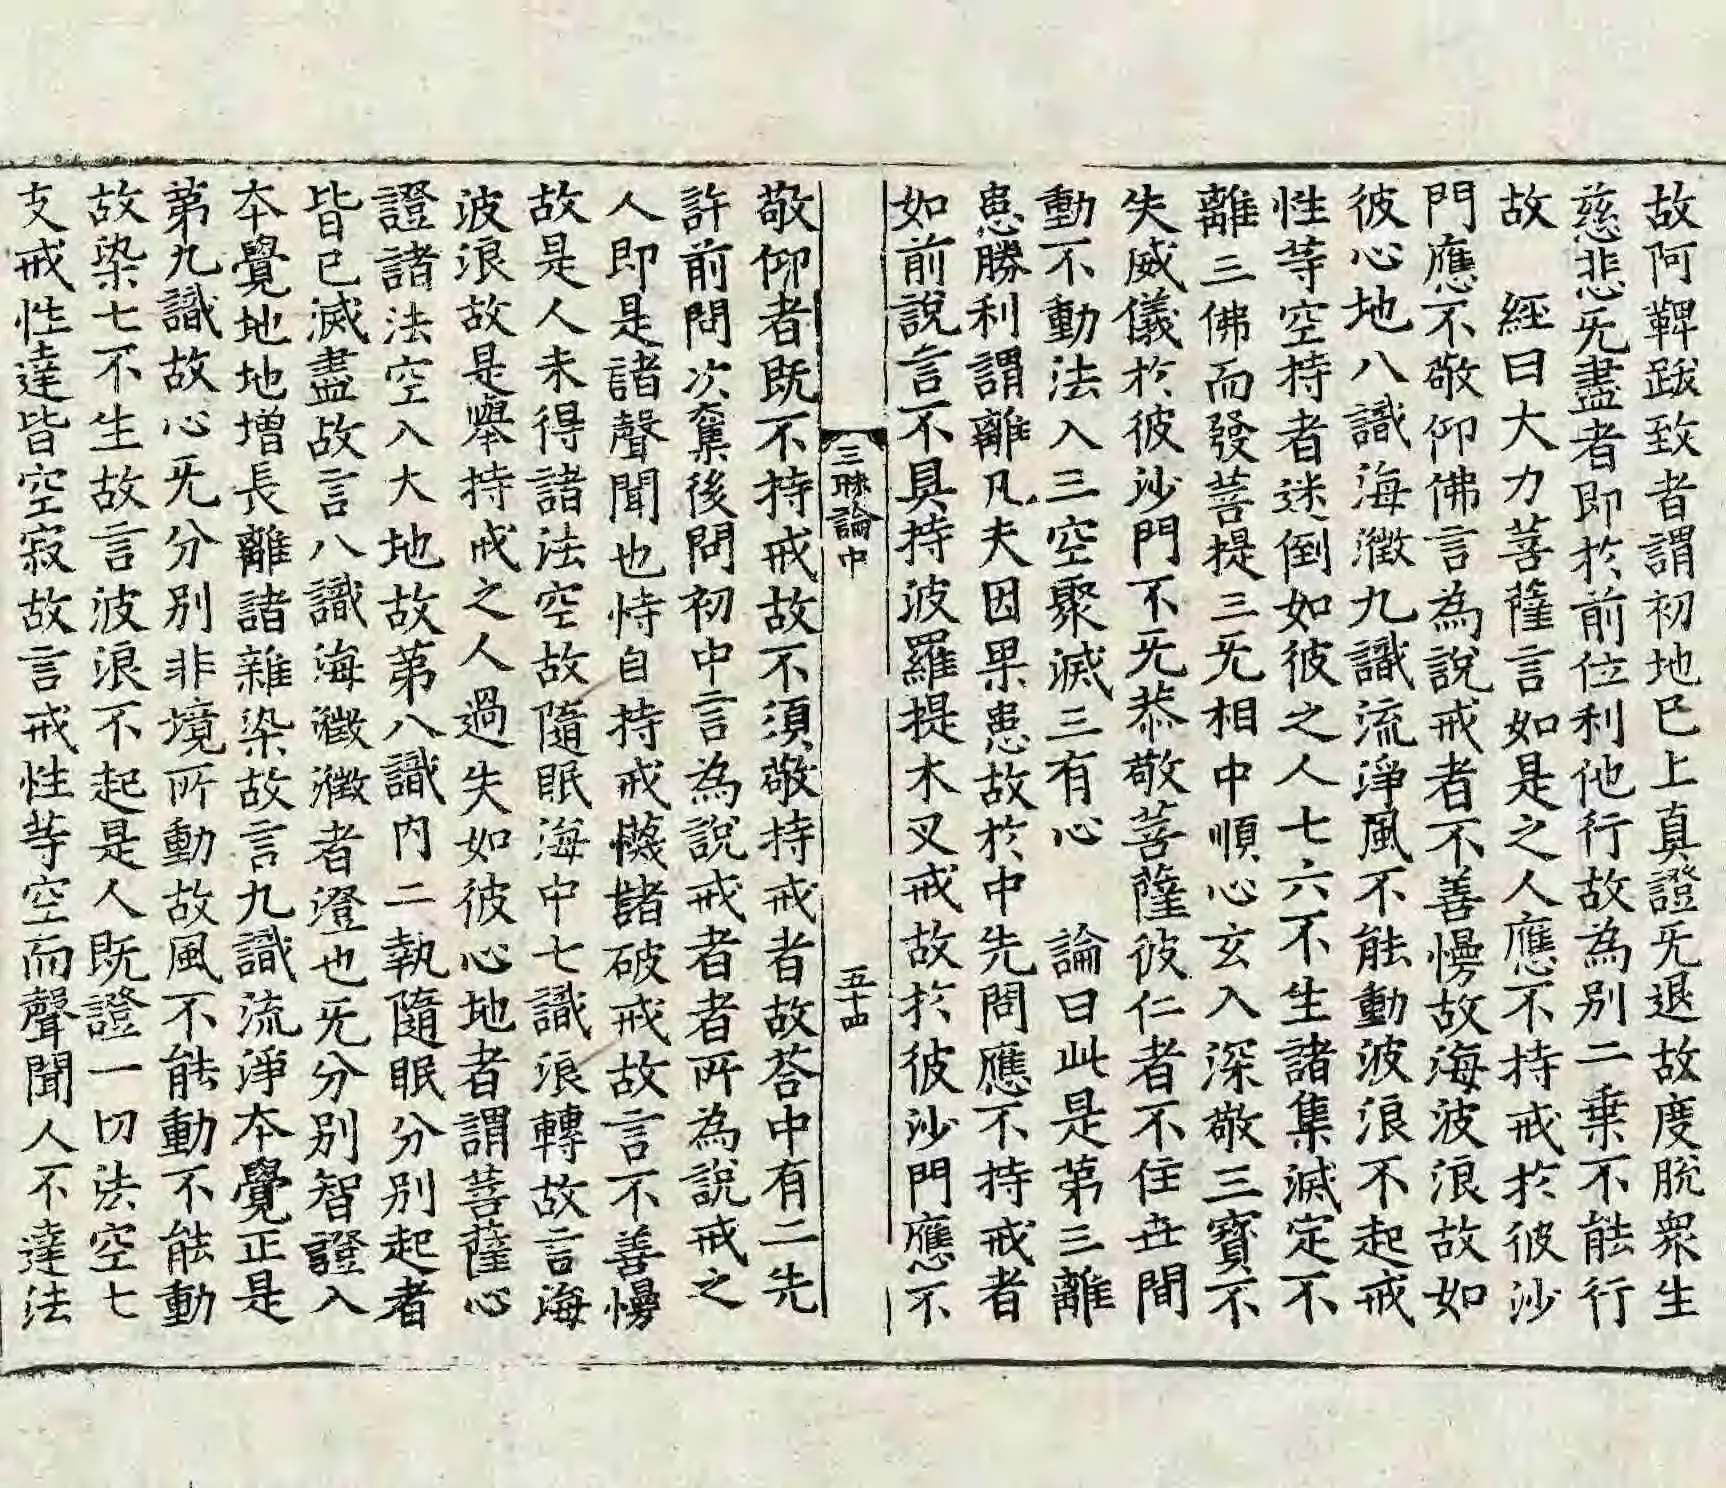 故阿鞞跋致者謂初地已上真證旡退故度脫衆生
慈悲旡盡者即於前位利他行故為別二乗不能行
故　經曰大力菩薩言如是之人應不持戒於彼沙
門應不敬仰佛言為說戒者不善慢故海波浪故如
彼心地八識海澂九識流淨風不能動波浪不起戒
性等空持者迷倒如彼之人七六不生諸集滅定不
離三佛而發菩提三旡相中順心玄入深敬三寳不
失威儀於彼沙門不旡恭敬菩薩彼仁者不住世間
動不動法入三空聚滅三有心　論曰此是第三離
患勝利謂離凡夫因果患故於中先問應不持戒者
如前說言不具持波羅提木叉戒故於彼沙門應不
三昧論中
五十四
敬仰者既不持戒故不須敬持戒者故荅中有二先
許前問次奪後問初中言為說戒者者所為說戒之
人即是諸聲聞也恃自持戒懱諸破戒故言不善慢
故是人未得諸法空故隨眠海中七識浪轉故言海
波浪故是舉持戒之人過失如彼心地者謂菩薩心
證諸法空入大地故第八識内二執隨眠分别起者
皆已滅盡故言八識海澂澂者澄也旡分别智證入
本覺地地增長離諸雜染故言九識流淨本覺正是
第九識故心旡分别非境所動故風不能動不能動
故染七不生故言波浪不起是人既證一切法空七
支戒性達皆空寂故言戒性等空而聲聞人不達法